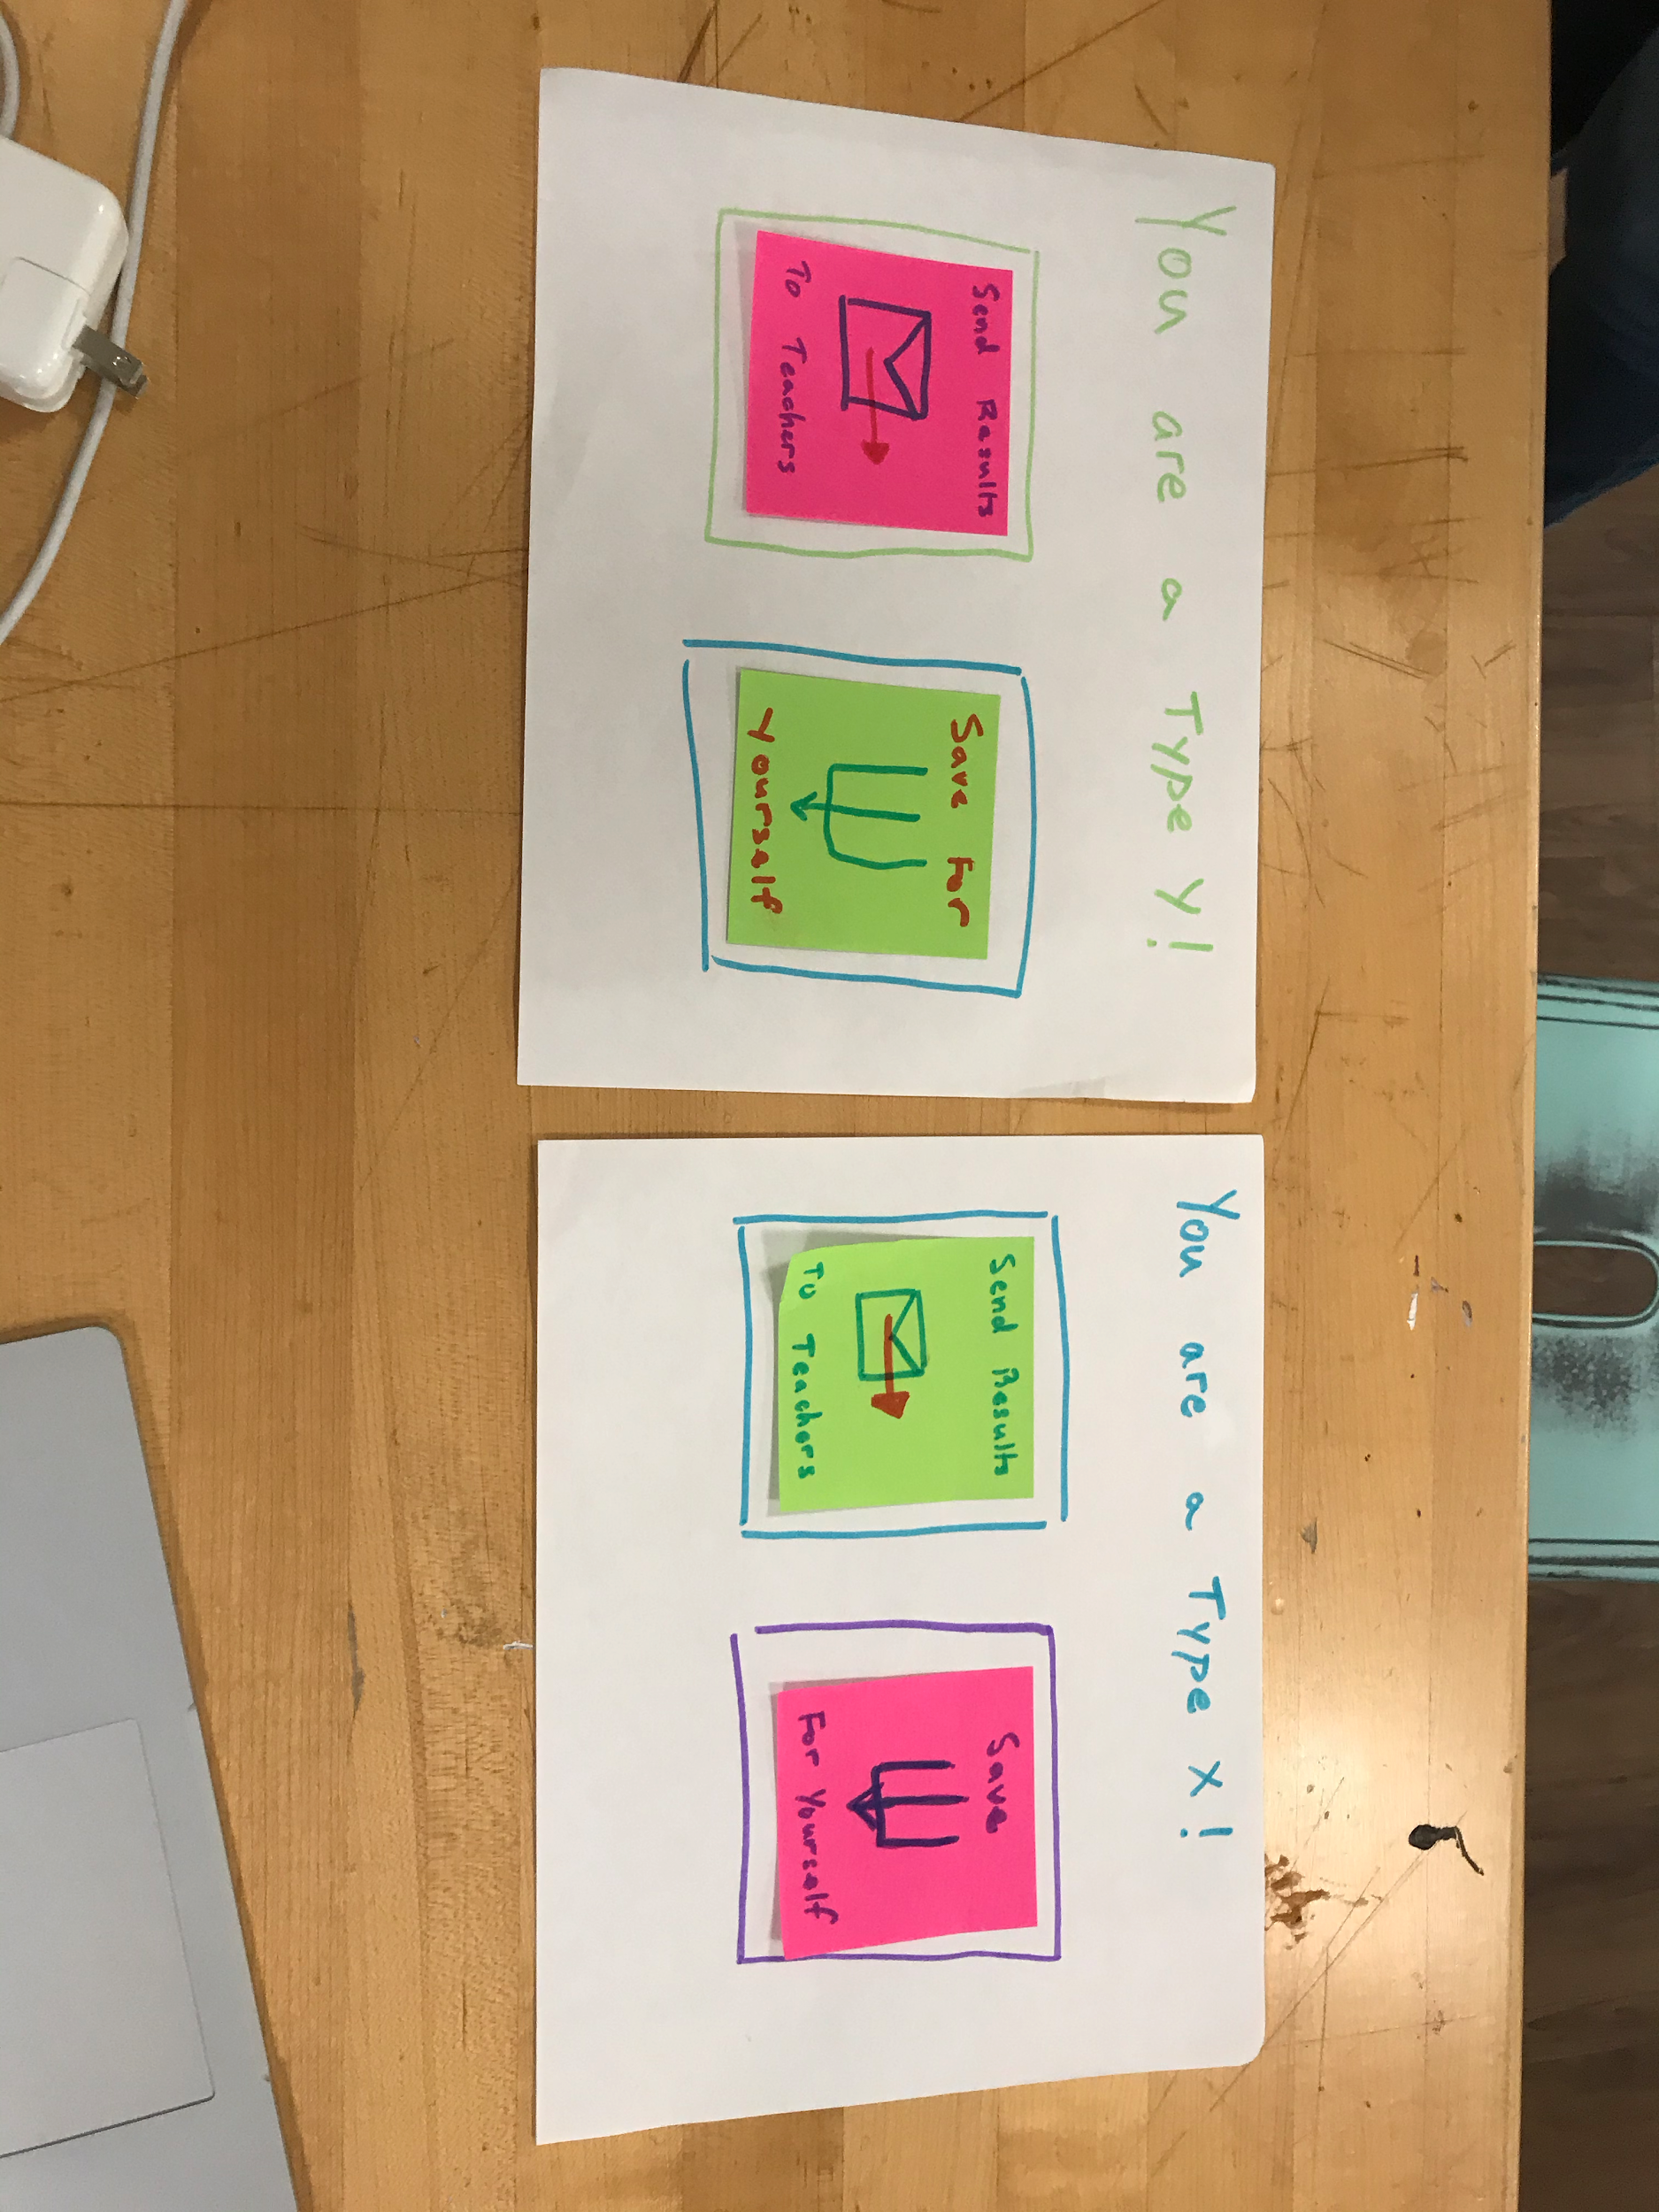 You are a Type y!
Send Results
To Teachers
Save For
yourself
You are a Type x!
Send Results
To Teachers
Save
For Yourself